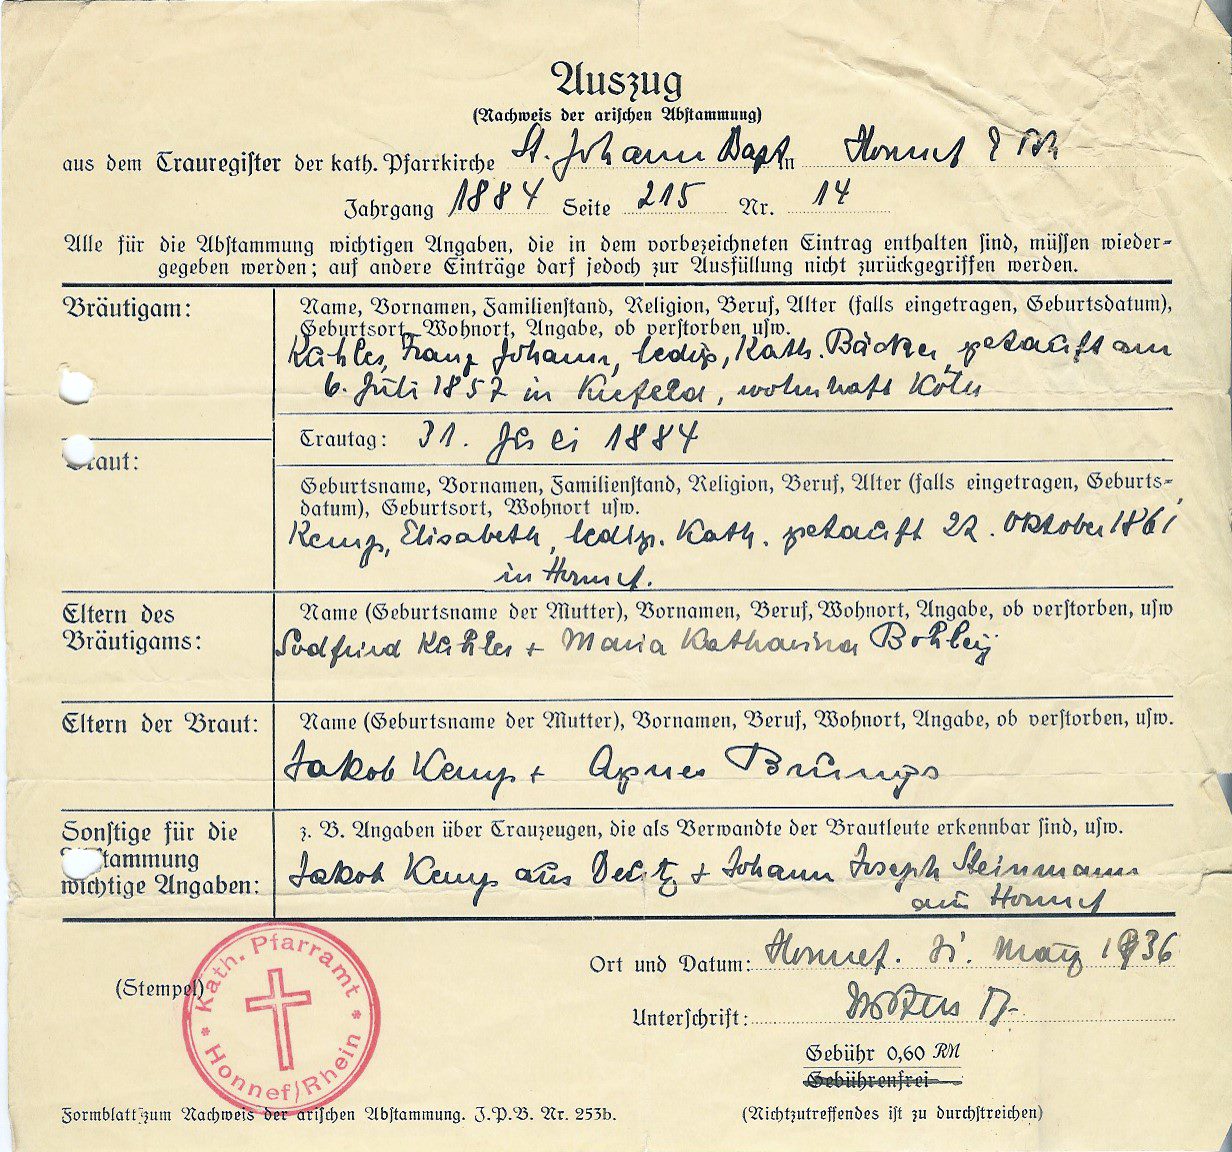 Auszug
(Nachweis der arischen Abstammung)
aus dem Trauregister der kath. Pfarrkirche St. Johann Bapt in Honnef Rh
Jahrgang 1884 Seite 215 Nr. 14
Alle für die Abstammung wichtigen Angaben, die in dem vorbezeichneten Eintrag enthalten sind, müssen wieder-
gegeben werden; auf andere Einträge darf jedoch zur Ausfüllung nicht zurückgegriffen werden.
Bräutigam:
Name, Vornamen, Familienstand, Religion, Beruf, Alter (falls eingetragen, Geburtsdatum),
Geburtsort, Wohnort, Angabe, ob verstorben usw.
Kühler, Franz Johann, ledig, Kath. Bäcker getauft am
6. Juli 1857 in Krefeld, wohnhaft Köln
Trautag: 31. Juli 1884
Braut:
Geburtsname, Vornamen, Familienstand, Religion, Beruf, Alter (falls eingetragen, Geburts-
datum), Geburtsort, Wohnort usw.
Kemp, Elisabeth, ledig. Kath. getauft 22. Oktober 1861
in Honnef.
Eltern des
Bräutigams:
Name (Geburtsname der Mutter), Vornamen, Beruf, Wohnort, Angabe, ob verstorben, usw
Godfried Kühler + Maria Katharina Bohley
Eltern der Braut:
Name (Geburtsname der Mutter), Vornamen, Beruf, Wohnort, Angabe, ob verstorben, usw.
Jakob Kemp + Agnes Brüngs
Sonstige für die
Abstammung
wichtige Angaben:
z. B. Angaben über Trauzeugen, die als Verwandte der Brautleute erkennbar sind, usw.
Jakob Kemp aus Deutz + Johann Joseph Steinmann
aus Honnef
(Stempel)
Kath. Pfarramt
* Honnef/Rhein *
Ort und Datum: Honnef. März 1936
Unterschrift:
Gebühr 0,60 RM
Gebührenfrei
Formblatt zum Nachweis der arischen Abstammung. J.P.B. Nr. 253b.
(Nichtzutreffendes ist zu durchstreichen)